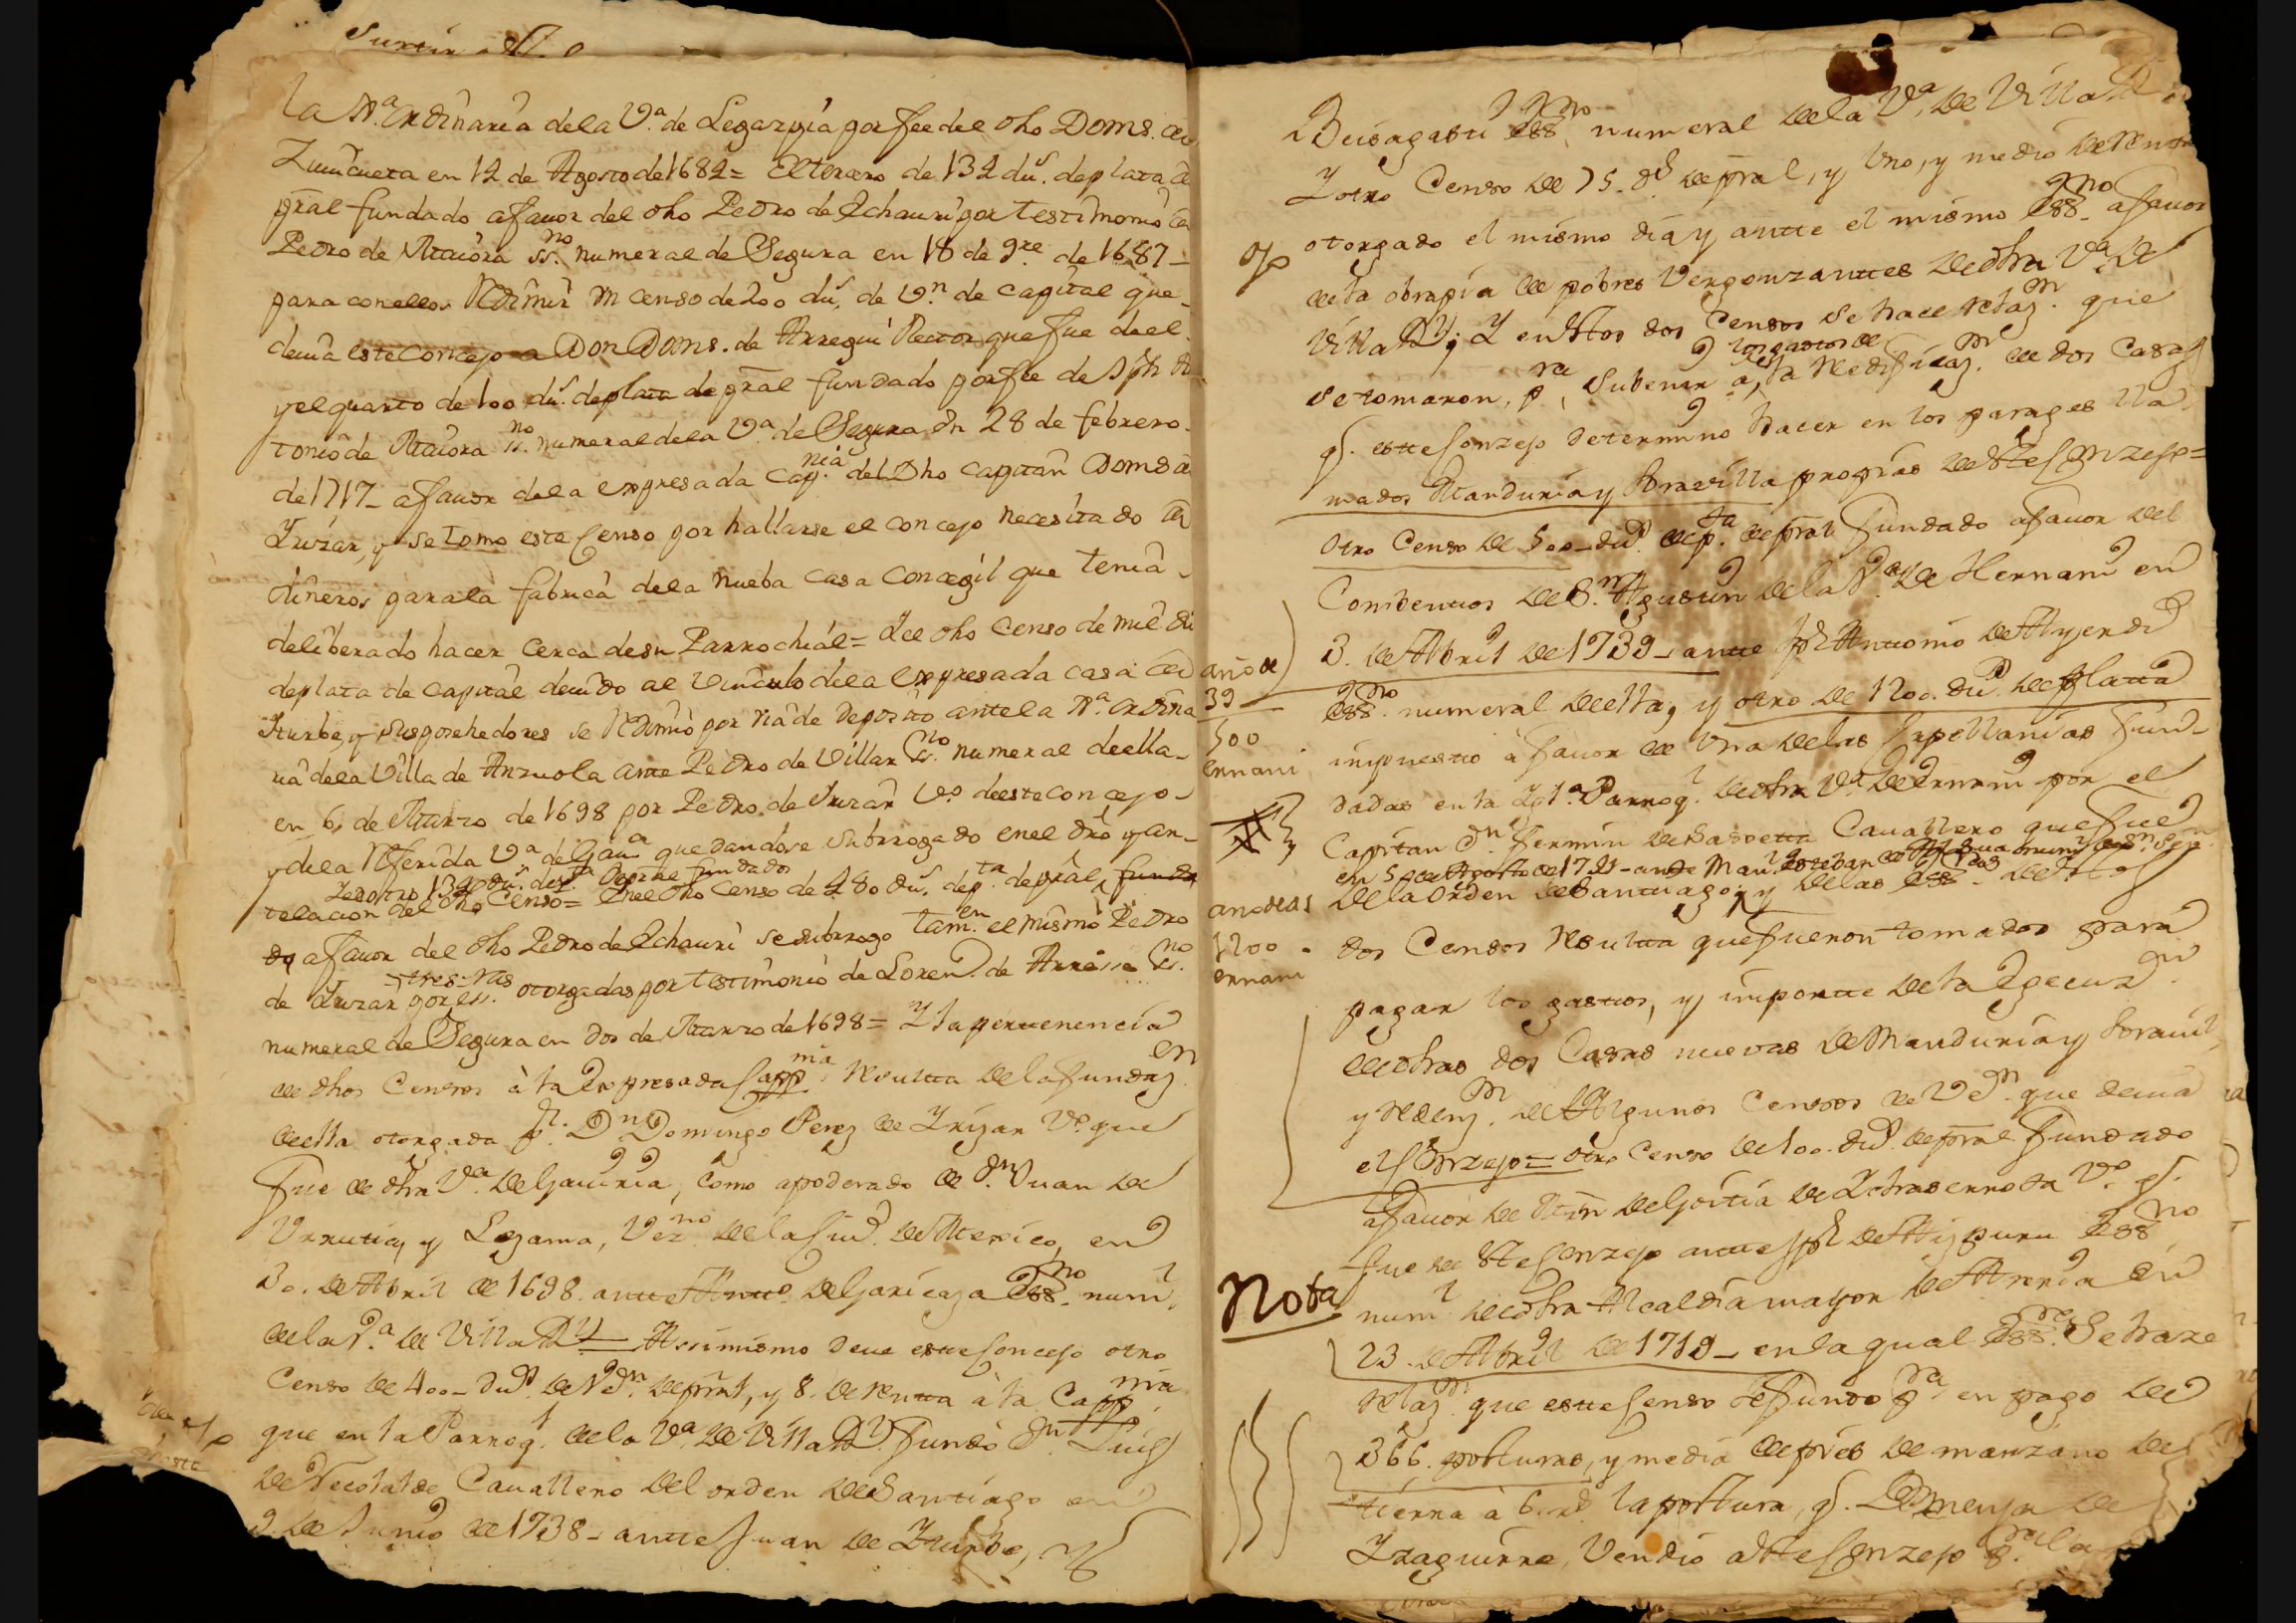 la Jª. ordinaria de la Vª. de Legazpia por fee del dho Doms. de
Zumcueta en 12 de Agosto de 1682 = El tercero de 132 dus. de plata de
pral fundado a fauor del dho Pedro de Echauri por testimonio de
Pedro de Maiora ssno. numeral de Segura en 18 de 9re. de 1687 _
para con ellos Redimir un censo de 200 dus. de Vn. de capital que
deuia este Concejo a Don Doms. de Arregui Rector que fue de el
y el quarto de 100 dus. de plata de pral fundado por fee de Jph An
tonio de Maiora ssno. numeral de la Vª. de Segura en 28 de febrero
de 1717 _ a fauor de la expresada Capnia. del Dho capitan Doms de
Yrizar, y se tomo este Censo por hallarse el concejo necesitado de
dineros para la fabrica de la nueba casa Concegil que tenia
deliberado hacer cerca de su Parrochial = Y el dho censo de mil du
de plata de capital deuido al Vinculo de la expresada casa de
Yturbe, y sus posehedores se Redimio por via de deposito ante la Jª. ordina
ria de la Villa de Anzuola ante Pedro de Villar ssno. numeral de ella _
en 6, de Marzo de 1698 por Pedro de Yrizar Vº. de este concejo _
y de la Referida Vª. de Gauª quedandose subrrogado en el dro y an-
Y en otro 132 dus. de pta de pral fundado
telacion del dho Censo = En el dho censo de 280 dus. de pta. de pral, funda
do a fauor del dho Pedro de Echauri se subrrogo tamen. el mismo Pedro
de Yrizar por ess. tres ras otorgadas por testimonio de Lorenº. de Arreisse ssno.
numeral de Segura en dos de Marzo de 1698 = Y la pertenencia
de dhos Censos à la Expresada Cappnia. Resulta de la fundazen.
de ella otorgada pr. Dn Domingo Perez de Yrizar Vº. que
fue de dha Vª. de Gauiria, como apoderado de Dn. Juan de
Vrrutia, y Lezama, Vezno. de la Ciud. de Mexico, en
30. de Abril de 1698. ante Antto. de Garicaza Essno. numl.
de la Vª. de Villa Rl = Assimismo deue este Concejo otro
Censo de 400 _ dus. de Vn. de pral, y 8. de renta à la Cappnia.
que en la Parroql. de la Vª. de Villa Rl. fundò Dn. Luis
de Necolalde Cauallero del orden de Santiago en
9. de Junio de 1738 _ ante Juan de Yturbe,
Beisagasti Essno. numeral de la Vª. de Villa Rl.
Y otro Censo de 75. ds de pral, y Uno, y medio de renta
otorgado el mismo dia y ante el mismo Essno. a fauor
de la obrapia de pobres Vergonzantes de dha Vª. de
Villa Rl; Y en estos dos Censos se hace relazn. que
se tomaron, pra, Subenir à los gastos de la Redificazn. de dos Casas
q. este Conzejo determinò hacer en los parages lla
mados Manduria y Oravilla propias de este Conzejo =
Otro Censo de 500 _ dus. de pta. de pral fundado a fauor del
Conbentos de Sn. Agustin de la Vª. de Hernani en
3. de Abril de 1739 _ ante Jph Antonio de Ayerdi
Essno. numeral de ella, y otro de 1200. dus. de plata
impuesto à fauor de Una de las Capellanias fun-
dadas en la Yglª. Parroql. de dha Vª. de Ernani por el
Capitan Dn. fermin de Sasoeta Cauallero que fue
en 5 de Agosto de 1721 _ ante Manl Esteban de
de la Orden de Santiago; y de las Essras. de estos
dos Censos Resulta que fueron tomados para
pagar los gastos, y importe de la Egecuzn.
de dhas dos Casas nuevas de Manduria y Orauil
y redenzn. de Algunos Censos de Vn. que deuia
el Conzejo = otro Censo de 100. dus. de pral fundado
a fauor de Mrn de Goitia de Ychaserrota Vº. q.
fue de este Conzejo ante Jph de Aizpuru Essno
numl. de dha Alcaldia mayor de Arreria en
23. de Abril de 1719 _ en la qual Essra. Se haze
relazn. que este Censo Se fundo pra en pago de
366. posturas, y media de pies de manzano de
tierra à 6. rs. la postura, q. Domenja de
Yzaguirre, Vendio a este Conzejo
año de
39
500
ernani
año de 21
1200
ernani
Nota